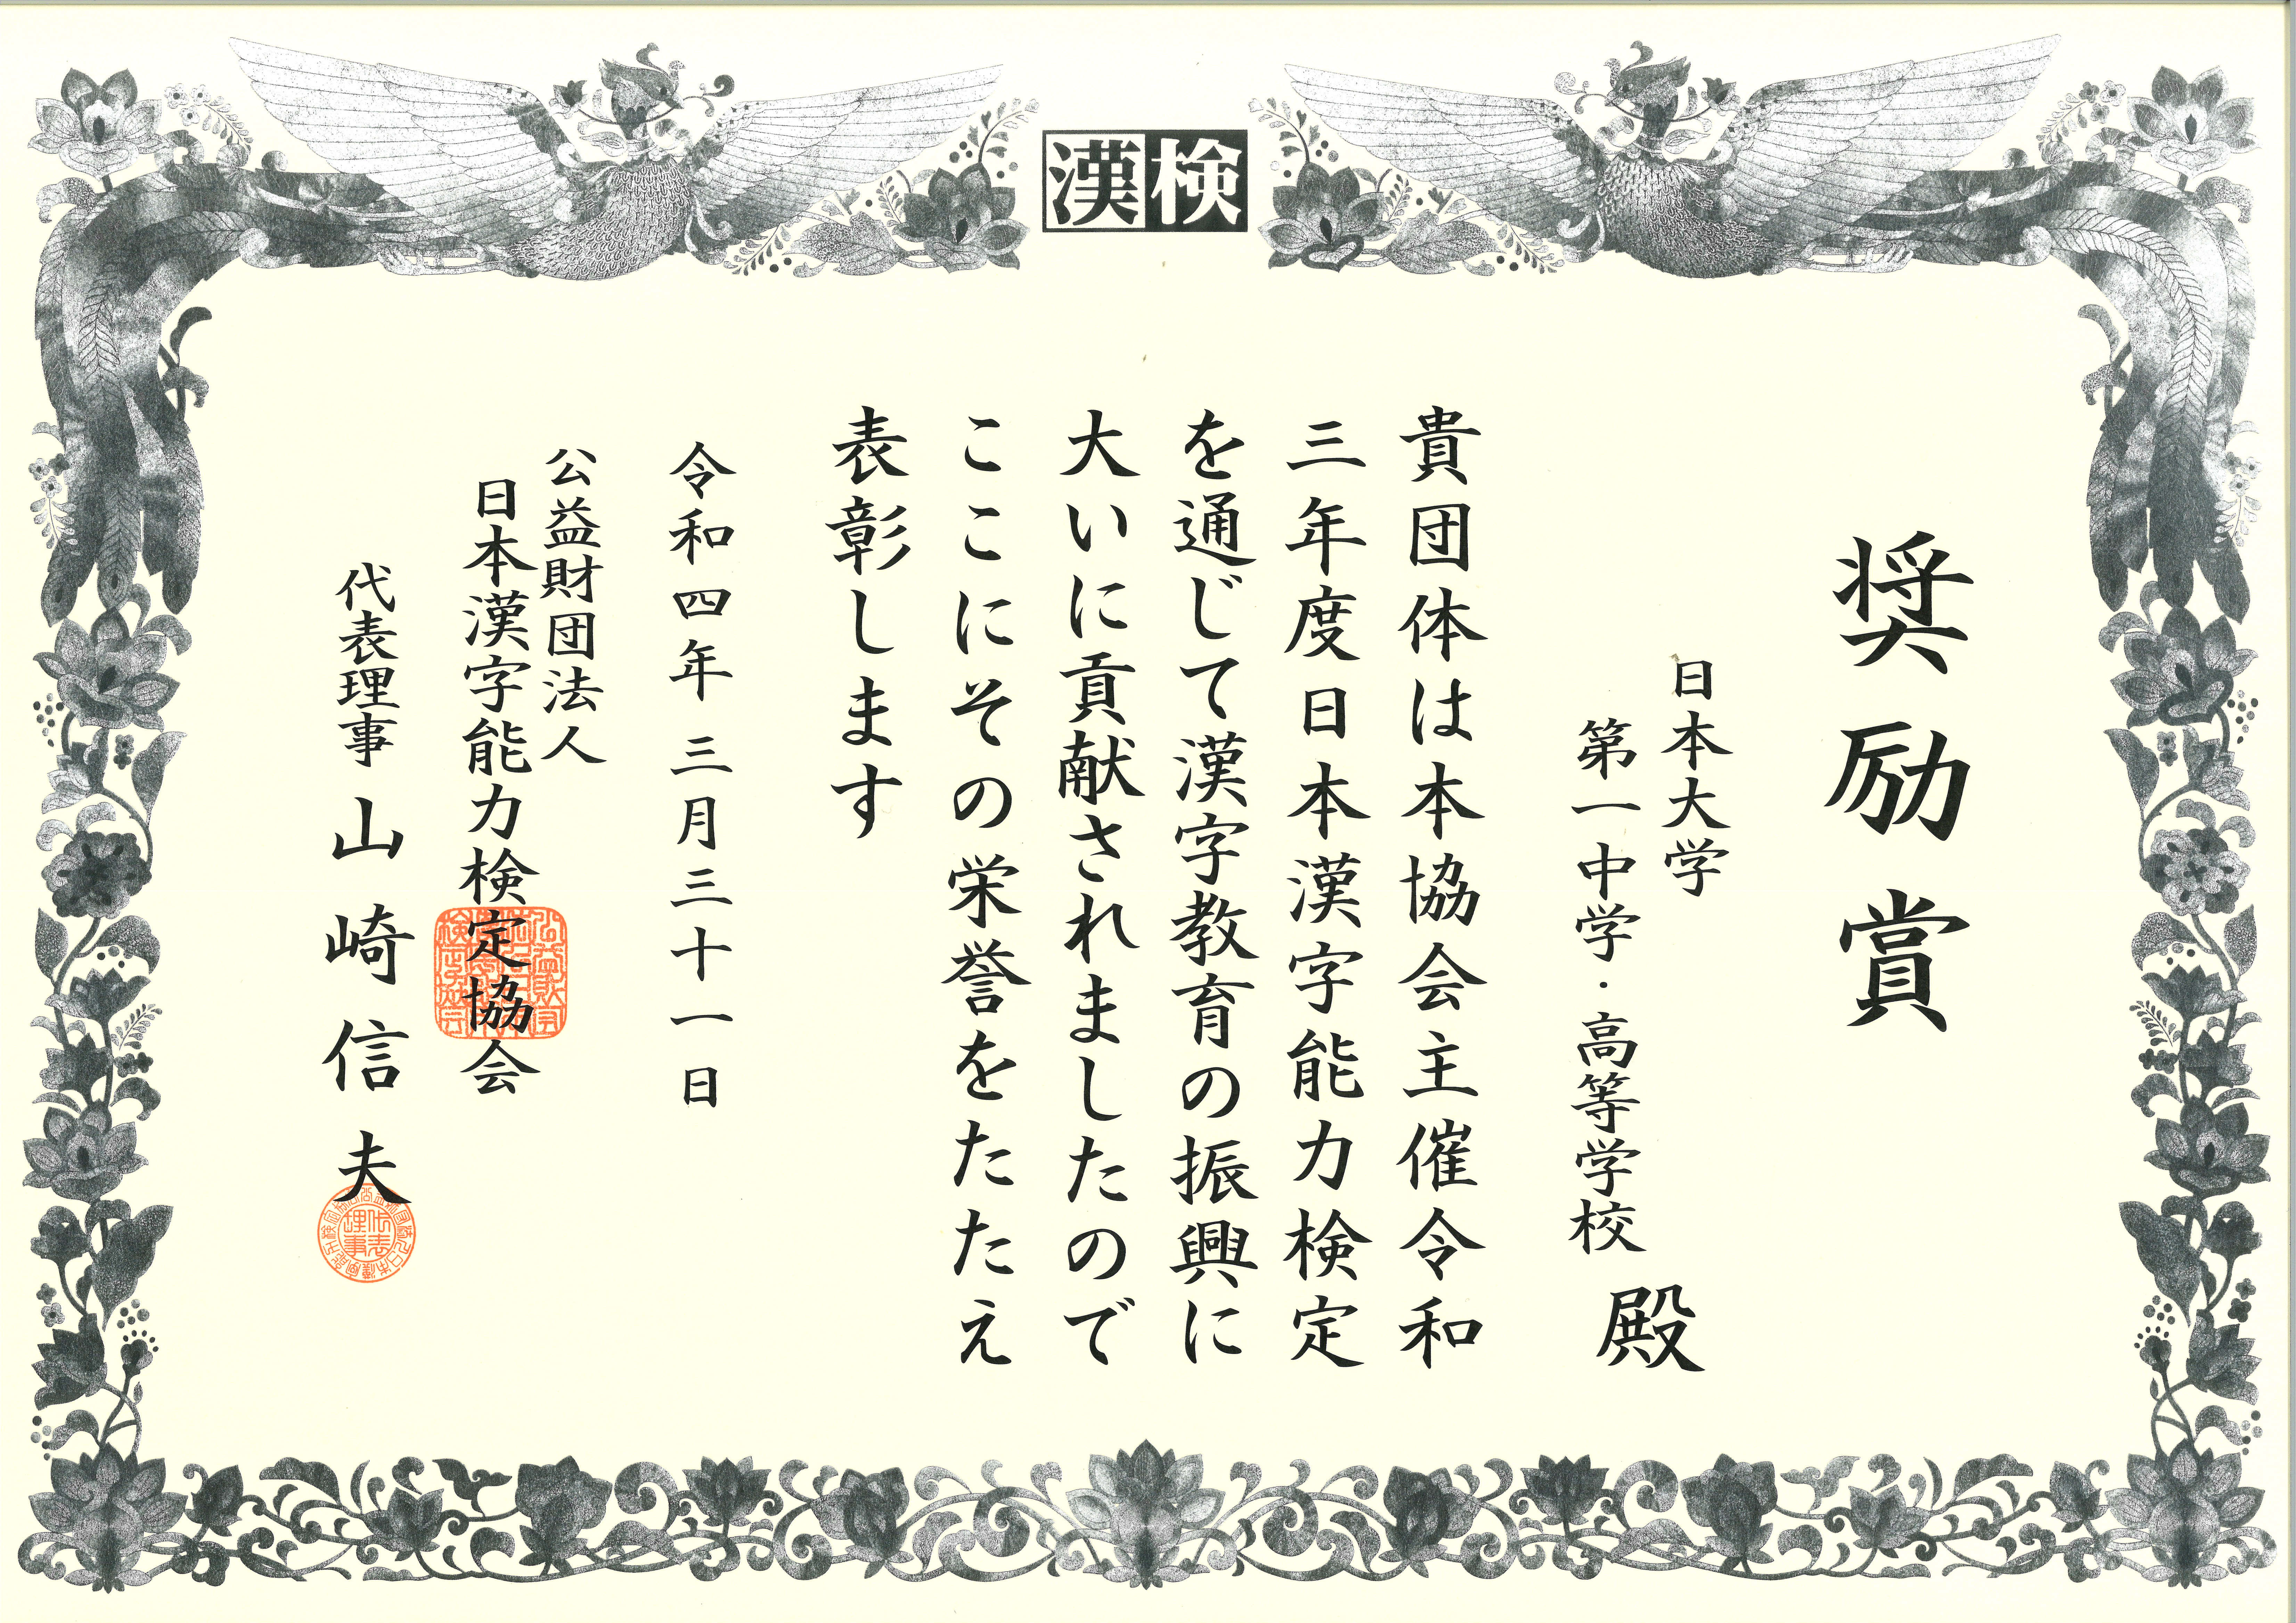 漢検
奨励賞
日本大学
第一中学・高等学校
殿
貴団体は本協会主催令和
三年度日本漢字能力検定
を通じて漢字教育の振興に
大いに貢献されましたので
ここにその栄誉をたたえ
表彰します
令和四年三月三十一日
公益財団法人
日本漢字能力検定協会
代表理事 山崎信夫